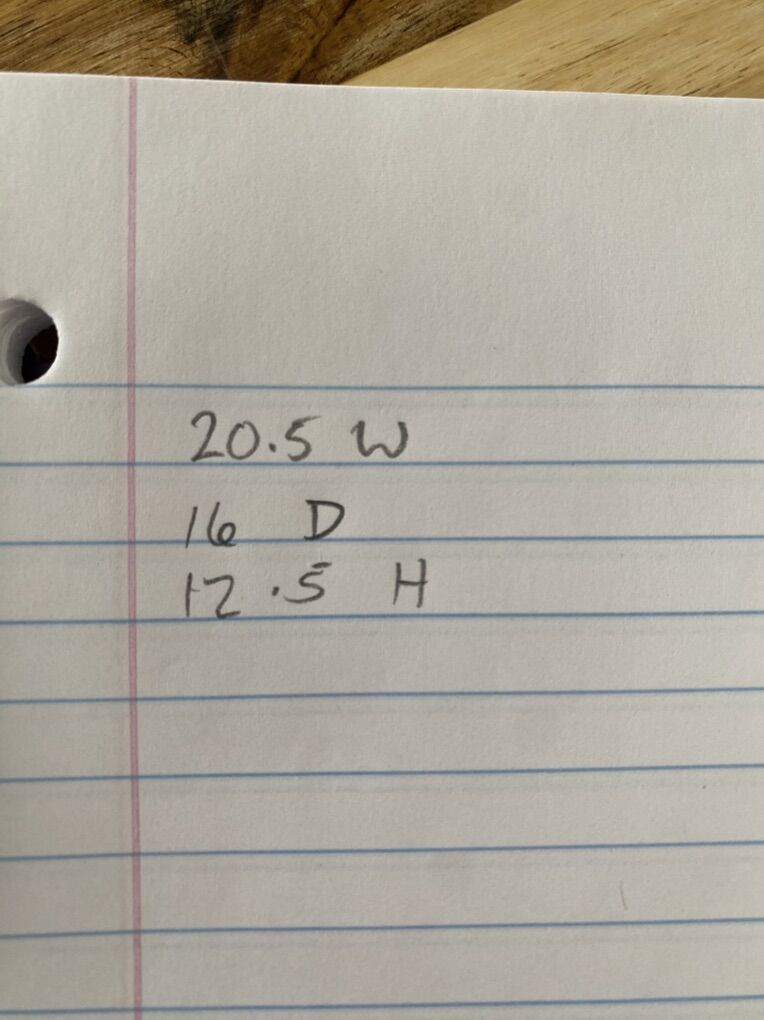 20.5 W
16 D
12.5 H